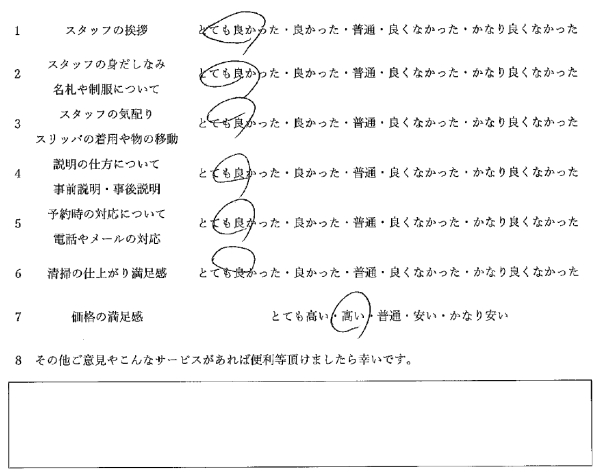 1 スタッフの挨拶 とても良かった・良かった・普通・良くなかった・かなり良くなかった
2 スタッフの身だしなみ
名札や制服について とても良かった・良かった・普通・良くなかった・かなり良くなかった
3 スタッフの気配り
スリッパの着用や物の移動 とても良かった・良かった・普通・良くなかった・かなり良くなかった
4 説明の仕方について
事前説明・事後説明 とても良かった・良かった・普通・良くなかった・かなり良くなかった
5 予約時の対応について
電話やメールの対応 とても良かった・良かった・普通・良くなかった・かなり良くなかった
6 清掃の仕上がり満足感 とても良かった・良かった・普通・良くなかった・かなり良くなかった
7 価格の満足感 とても高い・高い・普通・安い・かなり安い
8 その他ご意見やこんなサービスがあれば便利等頂けましたら幸いです。